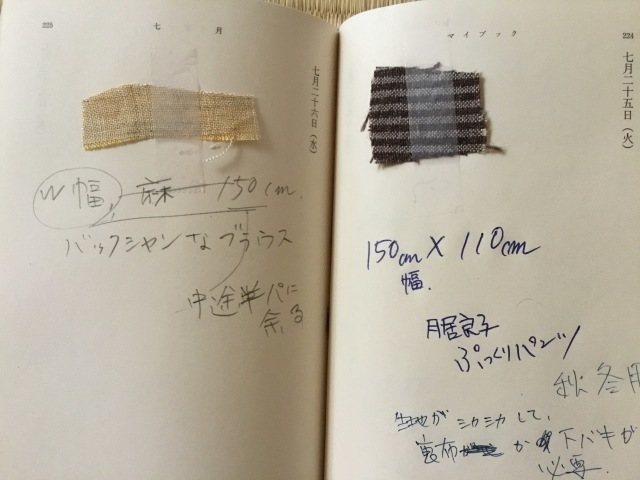 マイブック
224
七月二十五日(火)
150cm × 110cm
幅.
月居良子
ぷっくりパンツ
秋冬用
生地がシカシカして、
裏布か下バキが
必要.
七月
225
七月二十六日(水)
W幅, 麻 150cm.
バックシャンなブラウス
中途半パに
余る